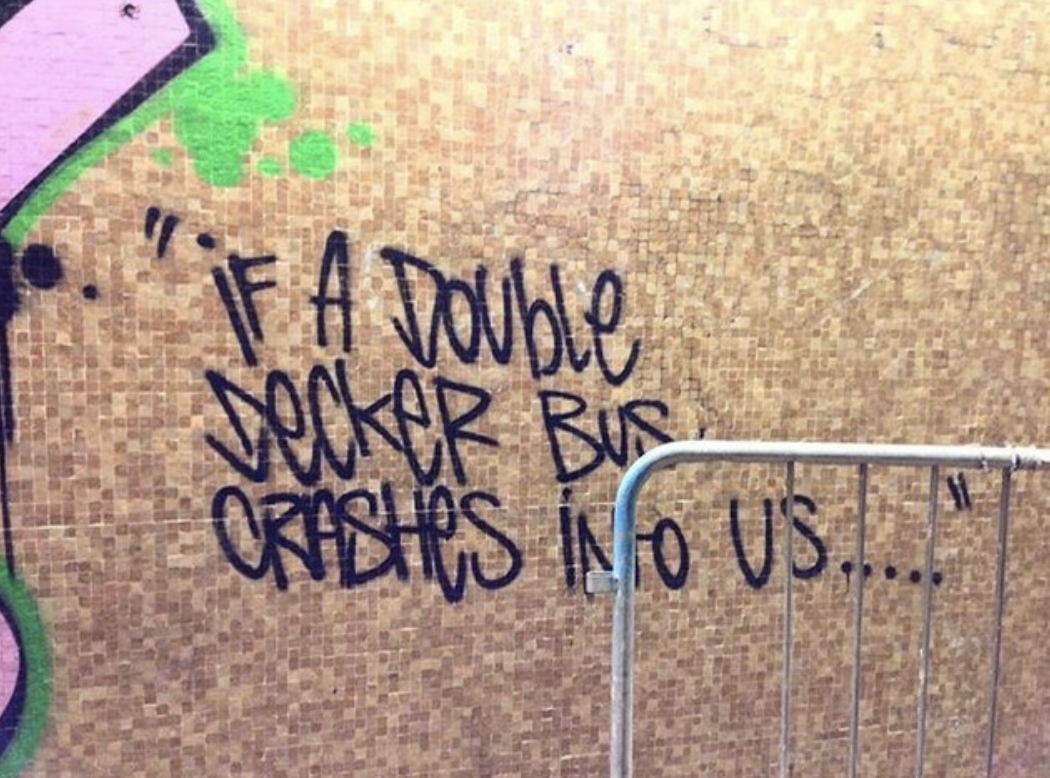 "IF A DOUblE
DECKER BUS
CRASHES INTO US....."